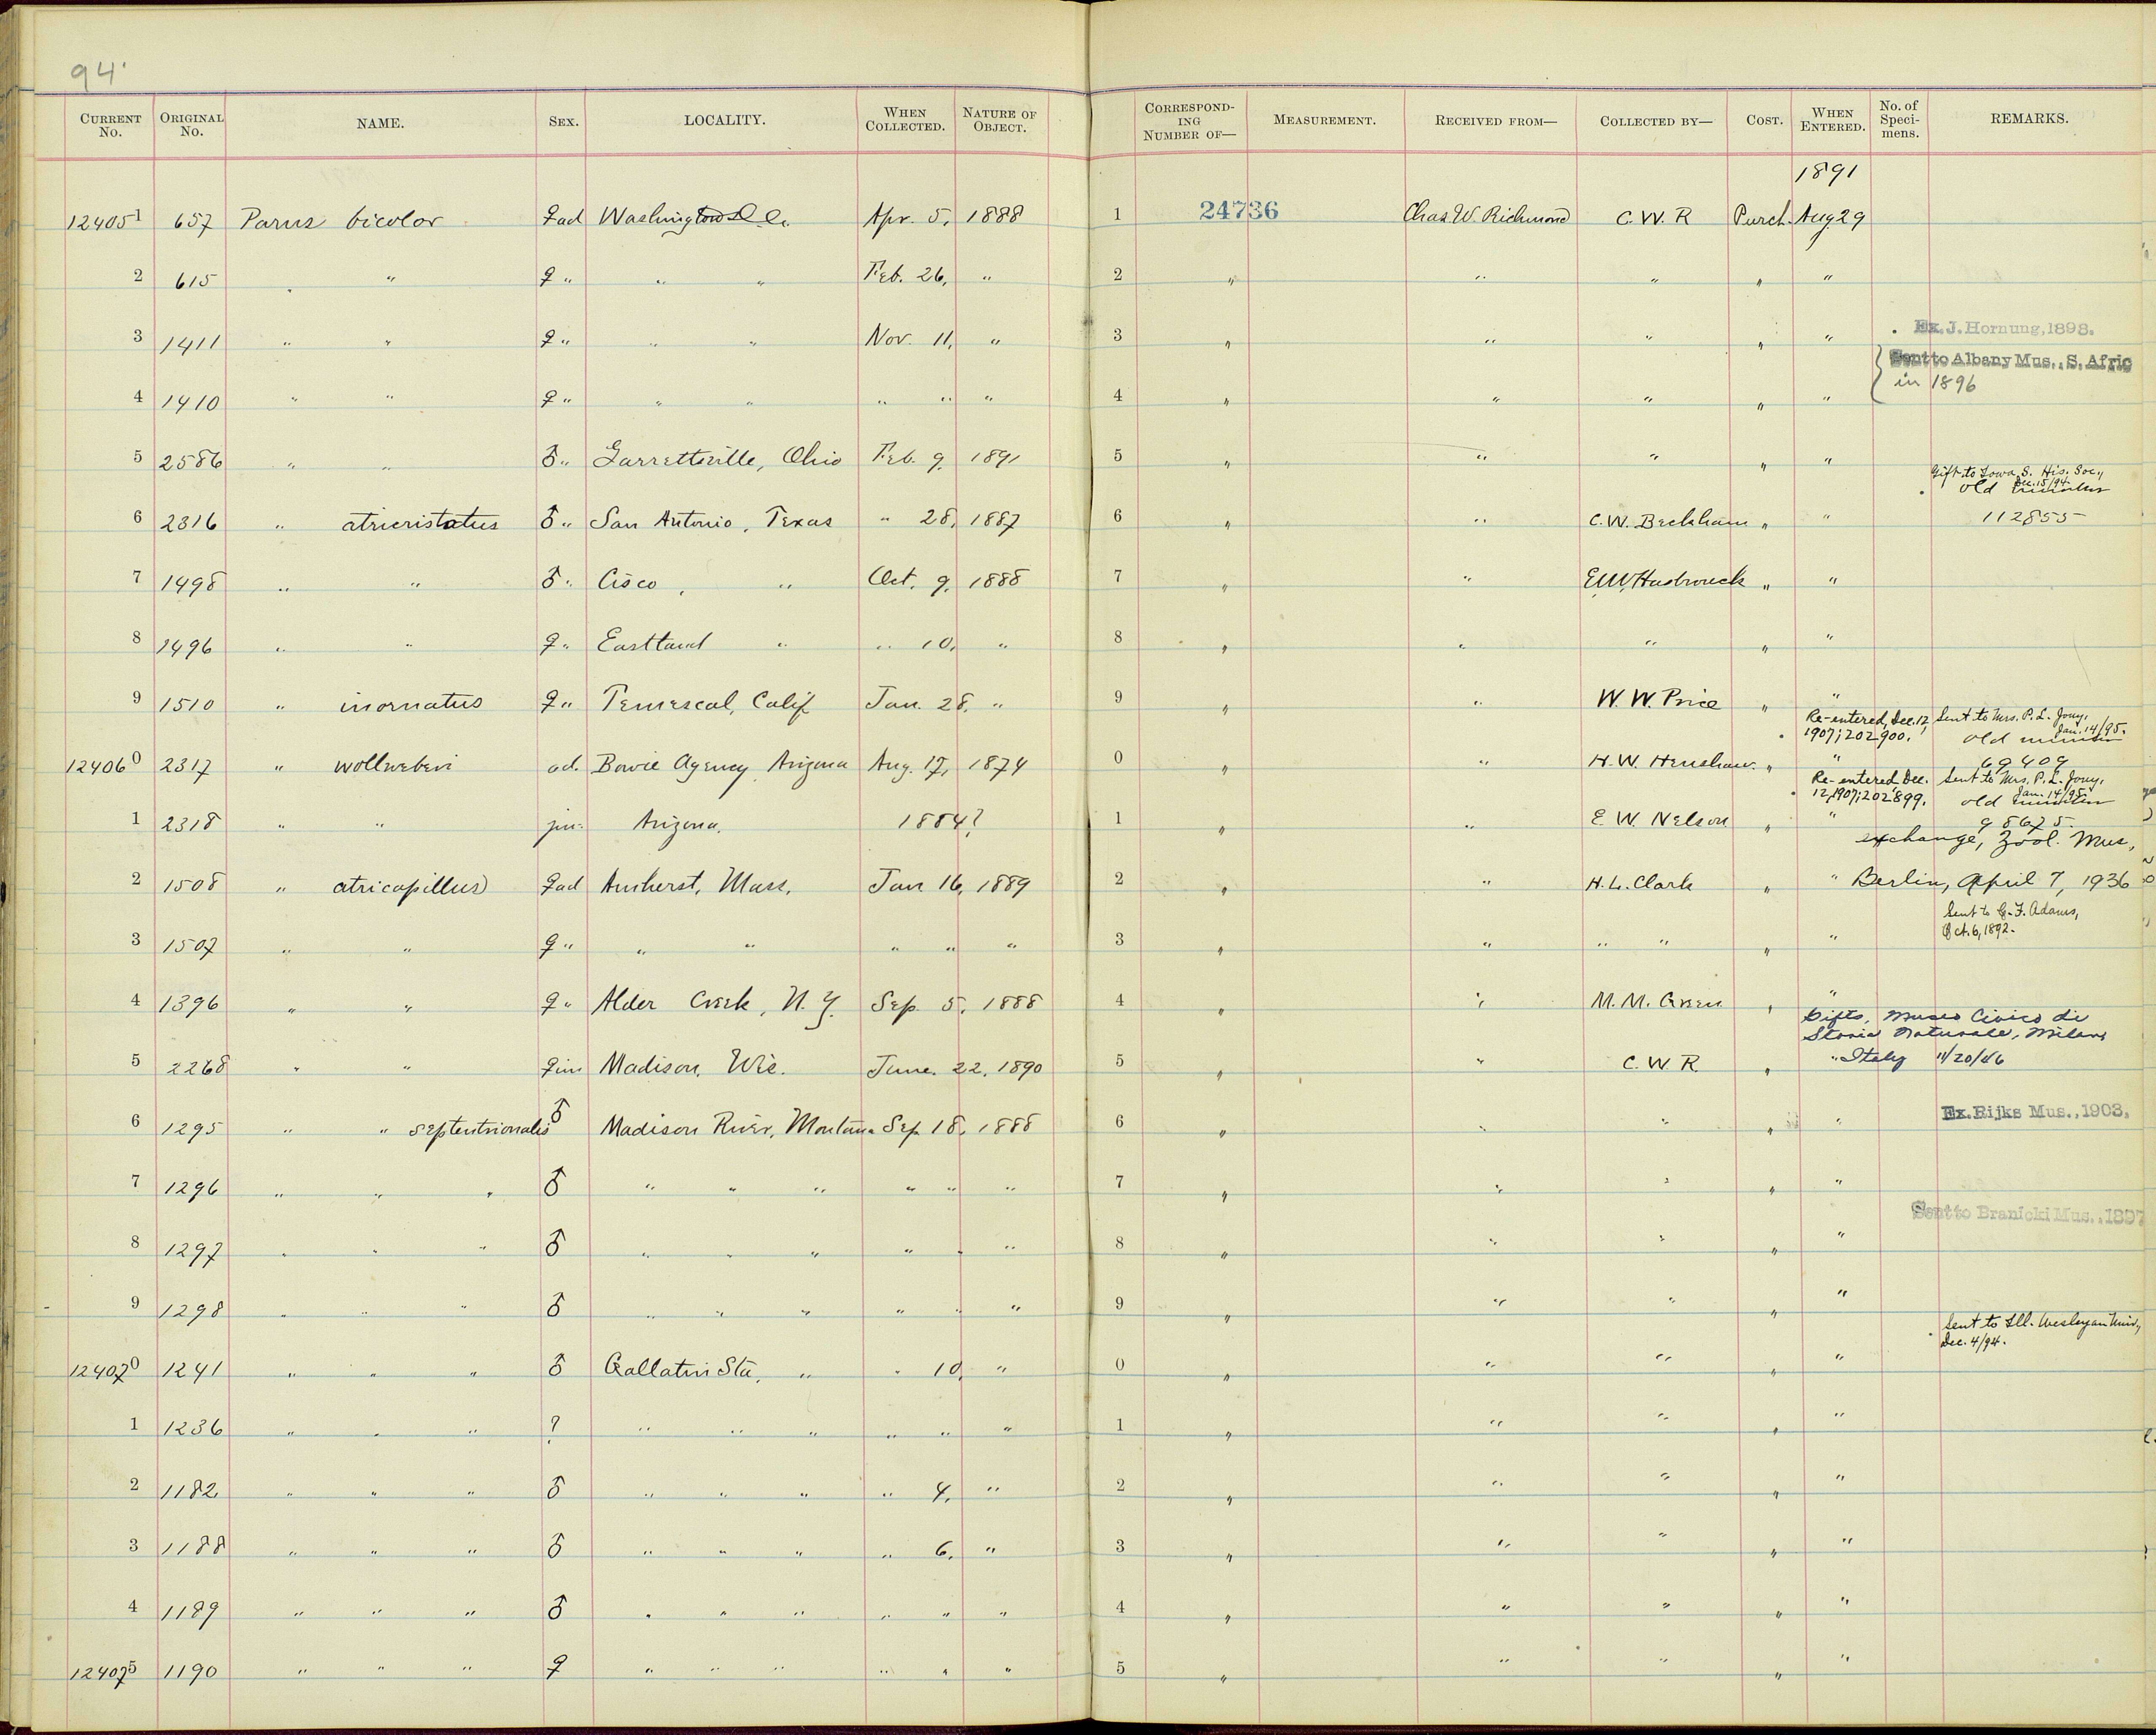 94
CURRENT No. ORIGINAL No. NAME. SEX. LOCALITY. WHEN COLLECTED. NATURE OF OBJECT. CORRESPONDING NUMBER OF— MEASUREMENT. RECEIVED FROM— COLLECTED BY— COST. WHEN ENTERED. No. of Specimens. REMARKS.
1891
124051 657 Parus bicolor ♀ad Washington D.C. Apr. 5, 1888 1 24736 Chas W. Richmond C. W. R Purch. Aug 29
2 615 " " ♀ " " " Feb. 26, " 2 " " " " "
3 1411 " " ♀ " " " Nov. 11, " 3 " " " " " Ex. J. Hornung, 1898.
Sent to Albany Mus., S. Afric
in 1896
4 1410 " " ♀ " " " " " " 4 " " " " "
5 2586 " " ♂ " Garrettsville, Ohio Feb. 9, 1891 5 " " " " "
Gift to Iowa S. His. Soc., Dec. 15/94.
old number
6 2316 " atricristatus ♂ " San Antonio, Texas " 28, 1887 6 " " C. W. Beckham " " 112855
7 1498 " " ♂ " Cisco, " Oct. 9, 1888 7 " " E.W. Hasbrouck " "
8 1496 " " ♀ " Eastland " " 10, " 8 " " " " "
9 1510 " inornatus ♀ " Temescal, Calif Jan. 28, " 9 " " W. W. Price " "
Re-entered, Dec. 12, 1907; 202900. Sent to Mrs. P. L. Jouy, Jan. 14/95.
old number
124060 2317 " wollweberi ad. Bowie Agency, Arizona Aug. 17, 1874 0 " " H. W. Henshaw. " " 69409
Re-entered, Dec. 12, 1907; 202899. Sent to Mrs. P. L. Jouy, Jan. 14/95.
old number
1 2318 " " juv. Arizona. 1884? 1 " " E. W. Nelson " " 98675.
exchange, Zool. Mus.,
2 1508 " atricapillus ♀ad Amherst, Mass. Jan 16, 1889 2 " " H. L. Clark " " Berlin, April 7, 1936
Sent to C. F. Adams,
Oct. 6, 1892.
3 1507 " " ♀ " " " " " " 3 " " " " " "
4 1396 " " ♀ " Alder Creek, N. Y. Sep. 5, 1888 4 " " M. M. Green " "
Gifts, Museo Civico di
Storia Naturale, Milano
5 2268 " " ♀im Madison, Wis. June. 22, 1890 5 " " C. W. R. " " Italy 11/20/46
6 1295 " " septentrionalis ♂ Madison River, Montana Sep 18, 1888 6 " " " " " Ex. Rijks Mus., 1903.
7 1296 " " " ♂ " " " " " " 7 " " " " "
Sent to Branicki Mus., 1897
8 1297 " " " ♂ " " " " " " 8 " " " " "
9 1298 " " " ♂ " " " " " " 9 " " " " "
Sent to Ill. Wesleyan Univ,
Dec. 4/94.
124070 1241 " " " ♂ Gallatin Sta, " " 10, " 0 " " " " "
1 1236 " " " ? " " " " " " 1 " " " " "
2 1182 " " " ♂ " " " " 4, " 2 " " " " "
3 1188 " " " ♂ " " " " 6, " 3 " " " " "
4 1189 " " " ♂ " " " " " " 4 " " " " "
124075 1190 " " " ♀ " " " " " " 5 " " " " "